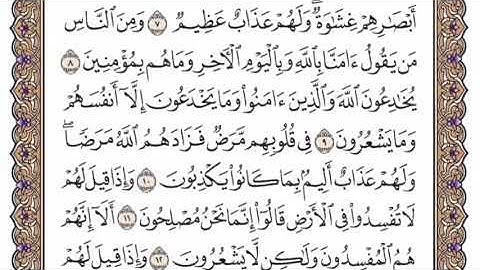 أَبْصَٰرِهِمْ غِشَٰوَةٌ ۖ وَلَهُمْ عَذَابٌ عَظِيمٌ ٧ وَمِنَ ٱلنَّاسِ
مَن يَقُولُ ءَامَنَّا بِٱللَّهِ وَبِٱلْيَوْمِ ٱلْءَاخِرِ وَمَا هُم بِمُؤْمِنِينَ ٨
يُخَٰدِعُونَ ٱللَّهَ وَٱلَّذِينَ ءَامَنُوا۟ وَمَا يَخْدَعُونَ إِلَّآ أَنفُسَهُمْ
وَمَا يَشْعُرُونَ ٩ فِى قُلُوبِهِم مَّرَضٌ فَزَادَهُمُ ٱللَّهُ مَرَضًا ۖ
وَلَهُمْ عَذَابٌ أَلِيمٌۢ بِمَا كَانُوا۟ يَكْذِبُونَ ١٠ وَإِذَا قِيلَ لَهُمْ
لَا تُفْسِدُوا۟ فِى ٱلْأَرْضِ قَالُوٓا۟ إِنَّمَا نَحْنُ مُصْلِحُونَ ١١ أَلَآ إِنَّهُمْ
هُمُ ٱلْمُفْسِدُونَ وَلَٰكِن لَّا يَشْعُرُونَ ١٢ وَإِذَا قِيلَ لَهُمْ